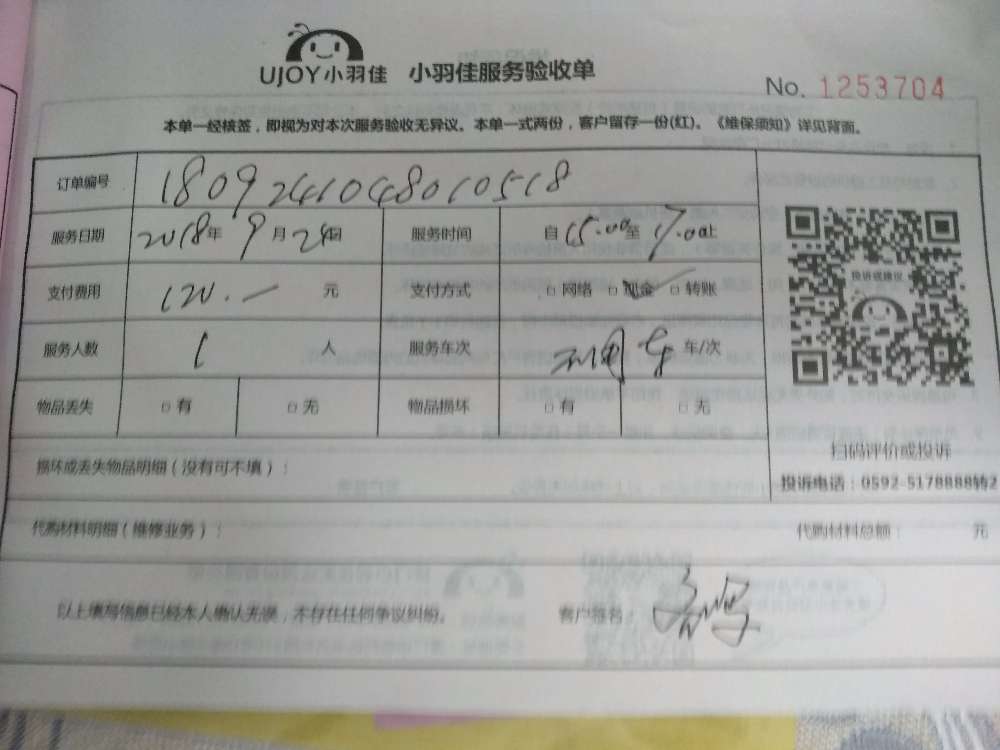 UJOY小羽佳 小羽佳服务验收单
No. 1253704
本单一经核签，即视为对本次服务验收无异议。本单一式两份，客户留存一份(红)。《维保须知》详见背面。
订单编号 180924104801051​8
服务日期 2018年9月24日 服务时间 自15:00至17:00止
支付费用 120.一 元 支付方式 □网络 □现金 □转账
服务人数 1 人 服务车次 车/次
投诉或建议
物品丢失 □有 □无 物品损坏 □有 □无
扫码评价或投诉
损坏或丢失物品明细（没有可不填）：
投诉电话：0592-5178888转2
代购材料明细（维修业务）： 代购材料总额： 元
以上填写信息已经本人确认无误，不存在任何争议纠纷。 客户签名：